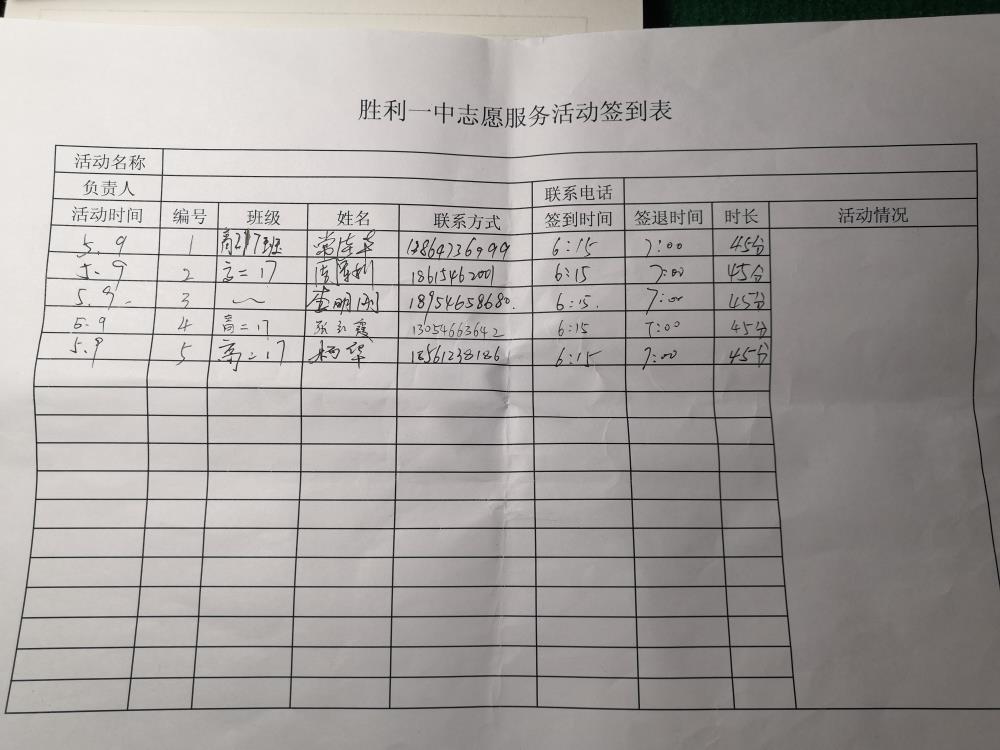 胜利一中志愿服务活动签到表
活动名称
负责人 联系电话
活动时间 编号 班级 姓名 联系方式 签到时间 签退时间 时长 活动情况
5.9 1 高217班 13864736999 6:15 7:00 45分
5.9 2 高二17 18615462001 6:15 7:00 45分
5.9. 3 〜 李明刚 18954658680. 6:15. 7:00 45分
5.9 4 高二17 13054663642 6:15 7:00 45分
5.9 5 高二17 杨华 13561238186 6:15 7:00 45分